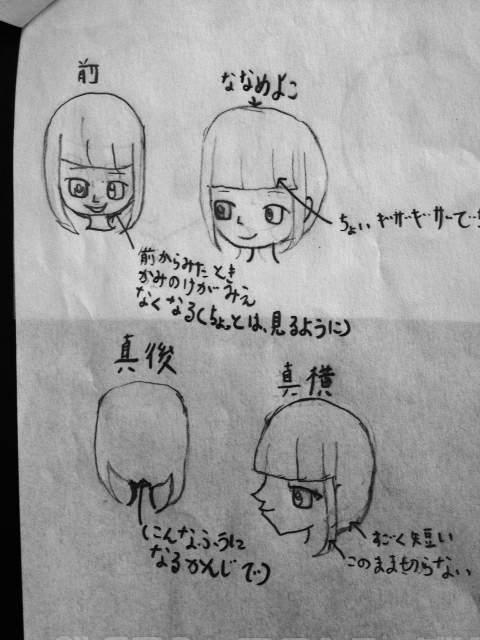 前
ななめよこ
ちょいギザギザーで
前からみたとき
かみのけがみえ
なくなる(ちょっとは、見るように)
真後
真横
(こんなふうに
なるかんじで)
すごく短い
このまま切らない